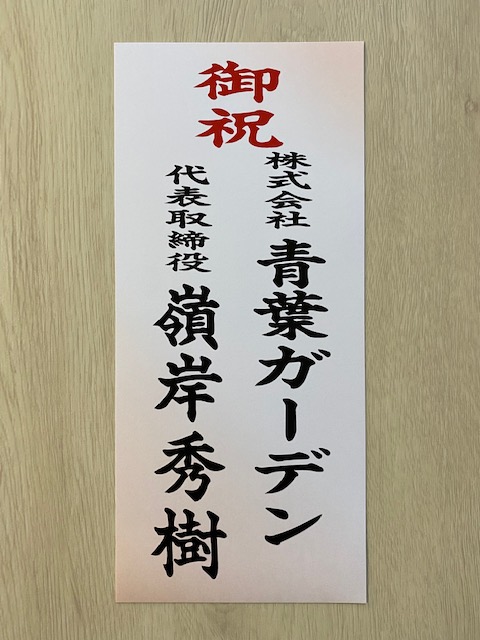 御祝
株式会社 青葉ガーデン
代表取締役 嶺岸秀樹